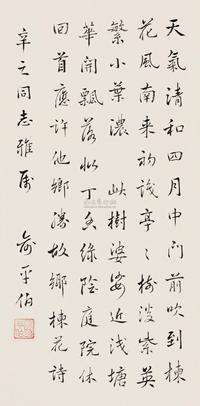 天氣清和四月中門前吹到楝
花風南来初識亭〻樹淡紫英
繁小葉濃 此樹婆娑近浅塘
華開飄落似丁香綠陰庭院休
回首應許他鄉勝故鄉 楝花詩
辛之同志雅属 俞平伯